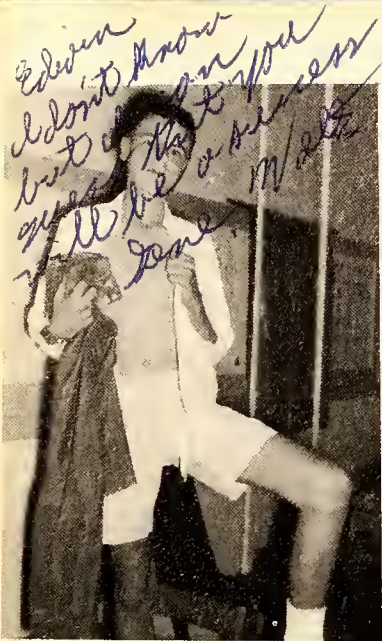 Edwin
I don't know
but I can
guess that you
will be a success
Gene.